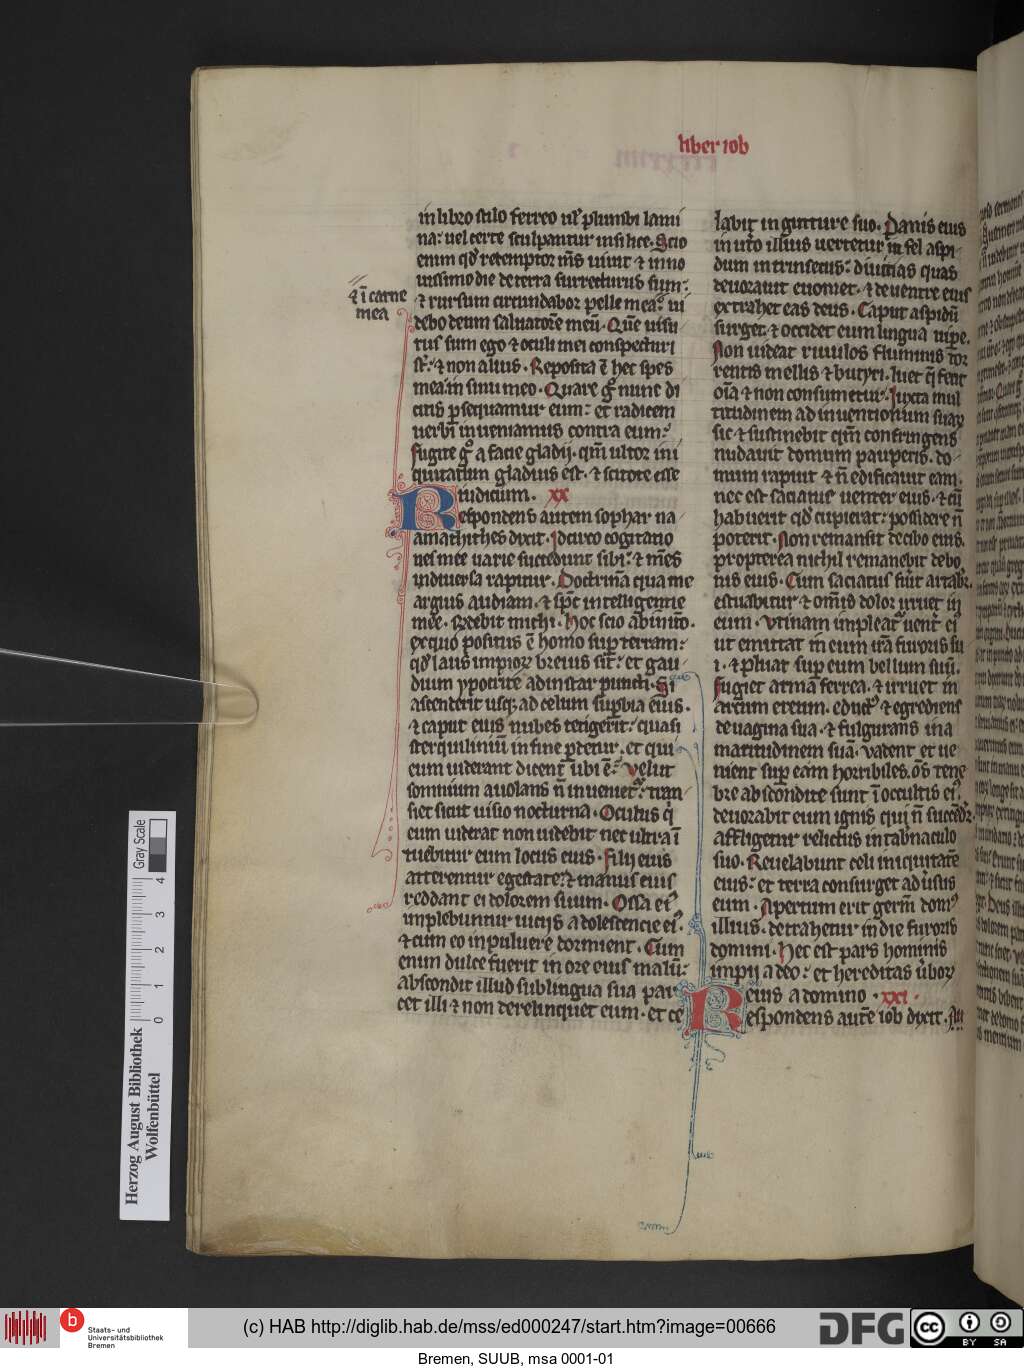 liber iob
in libro stilo ferreo ul' plumbi lami
na: uel certe sculpantur in silice. Scio
enim qd redemptor ms uiuit & in no
uissimo die de terra surrecturus sum:
& rursum circundabor pelle mea: ui
& i carne
mea
debo deum saluatore meu. Que uisu
rus sum ego & oculi mei conspecturi
st: & non alius. Reposita e hec spes
mea in sinu meo. Quare g nunc di
citis psequamur eum: et radicem
uerbi inueniamus contra eum:
fugite g a facie gladii. qm ultor ini
quitatum gladius est. & scitote esse
iudicium. xx
Respondens autem sophar na
amathithes dixit. Idcirco cogitatio
nes mee uarie succedunt sibi: & mes
in diuersa rapitur. Doctrina qua me
arguis audiam. & spc intelligentie
mee. Rndebit michi. Hoc scio ab initio.
ex quo positus e homo sup terram:
qd laus impiorz breuis sit: et gau
dium ypocrite ad instar puncti. Si
ascenderit usq; ad celum supbia eius.
& caput eius nubes tetigerit: quasi
sterquiliniu in fine pdetur. et qui
eum uiderant dicent ubi e: Velut
somnium auolans n inuenietr: tran
siet sicut uisio nocturna. Oculus q
eum uiderat non uidebit nec ultra i
tuebitur eum locus eius. Filij eius
atterentur egestate: & manus eius
reddant ei dolorem suum. Ossa ei
implebuntur uiciis adolescencie ei.
& cum eo in puluere dormient. Cum
enim dulce fuerit in ore eius malu:
abscondit illud sub lingua sua par
cet illi & non derelinquet eum. et ce
labit in gutture suo. Panis eius
in uto illius uertetur in fel aspi
dum intrinsecus: diuitias quas
deuorauit euomet. & de uentre eius
extrahet eas deus. Caput aspidu
surget. & occidet eum lingua uipe.
Non uideat riuulos fluminis tor
rentis mellis & butyri. luet q fecit
oia & non consumetur. Iuxta mul
titudinem adinuentionum suar
sic & sustinebit qm confringens
nudauit domum pauperis. do
mum rapuit & n edificauit eam.
nec est saciatus uenter eius. & cu
habuerit qd cupierat: possidere n
poterit. Non remansit de cibo eius.
propterea nichil remanebit de bo
nis eius. Cum saciatus fuit artabr.
estuabitur & omis dolor irruet in
eum. Vtinam impleat uent ei
ut emittat in eum ira furoris su
i. & pluat sup eum bellum suu.
Fugiet arma ferrea. & irruet in
arcum ereum. educt & egrediens
de uagina sua. & fulgurans in a
maritudinem sua. Vadent et ue
nient sup eam horribiles. os tene
bre abscondite sunt i occultis ei.
deuorabit eum ignis qui n succedr.
affligetur relictus in tabnaculo
suo. Reuelabunt celi iniquitate
eius: et terra consurget aduersus
eum. Apertum erit germ dom
illius. detrahetur in die furoris
domini. Hec est pars hominis
impij a deo: et hereditas uborz
eius a domino. xxi.
Respondens aute iob dixit. Au
Gray Scale
0 1 2 3 4
Herzog August Bibliothek
Wolfenbüttel
b
Staats- und
Universitätsbibliothek
Bremen
(c) HAB http://diglib.hab.de/mss/ed000247/start.htm?image=00666
DFG
cc
BY SA
Bremen, SUUB, msa 0001-01